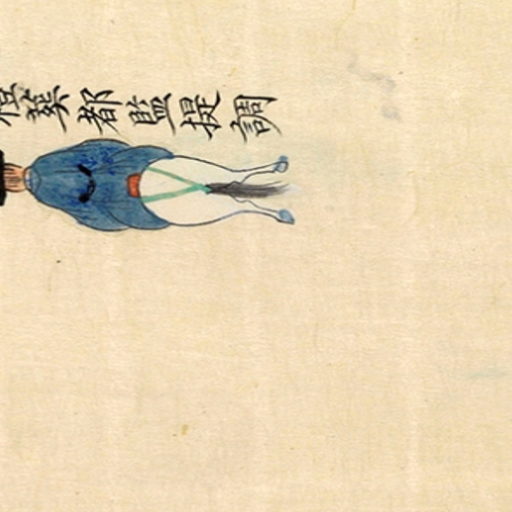 葬都監提調